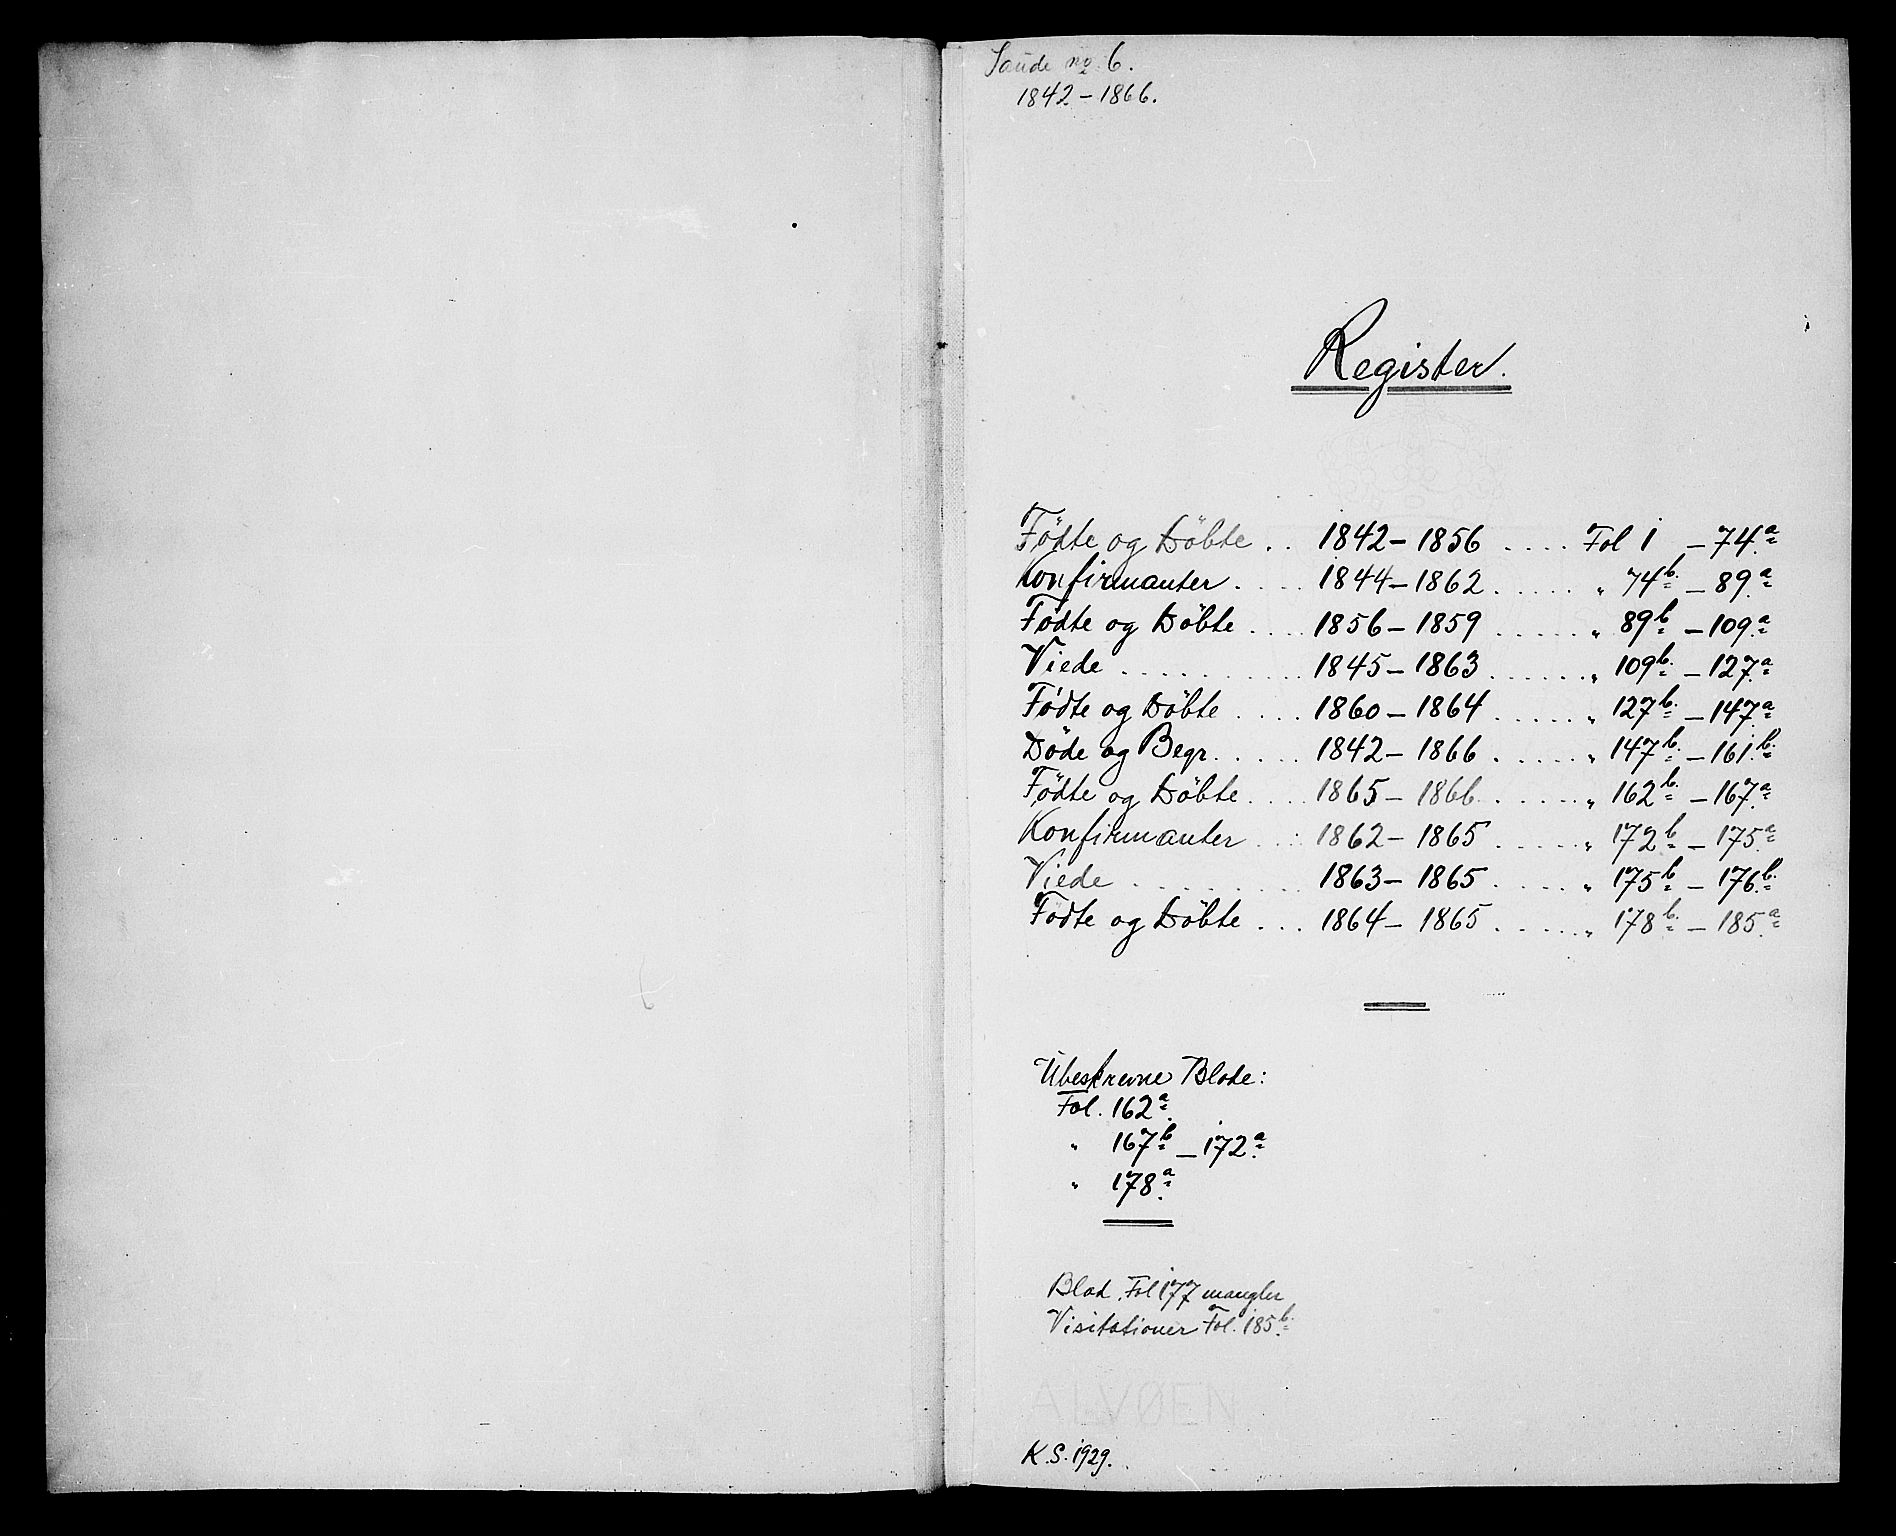 Saude no 6.
1842 – 1866.
Register.
Fødte og Döbte . . 1842 – 1856 . . . . Fol 1 – 74.a
Konfirmanter . . . . 1844 – 1862 . . . . . " 74b. – 89.a
Fødte og Döbte . . . . 1856 – 1859 . . . . . " 89b – 109.a
Viede . . . . . . . . . . 1845 – 1863 . . . . . . " 109b. – 127.a
Fødte og Döbte . . . . 1860 – 1864 . . . . . " 127b. – 147.a
Döde og Begr. . . . . 1842 – 1866 . . . . . " 147b. – 161.b.
Fødte og Döbte . . . . 1865 – 1866 . . . . . " 162b. – 167.a
Konfirmanter . . . . 1862 – 1865 . . . . . " 172b – 175.a
Viede . . . . . . . . . 1863 – 1865 . . . . . " 175b – 176.b.
Fødte og Döbte . . . 1864 – 1865 . . . . . " 178b. – 185.a
Ubeskrevne Blade:
Fol. 162a.
" 167b – 172a.
" 178a.
Blad Fol 177 mangler
Visitationer Fol. 185.b.
ALVØEN
K.S. 1929.